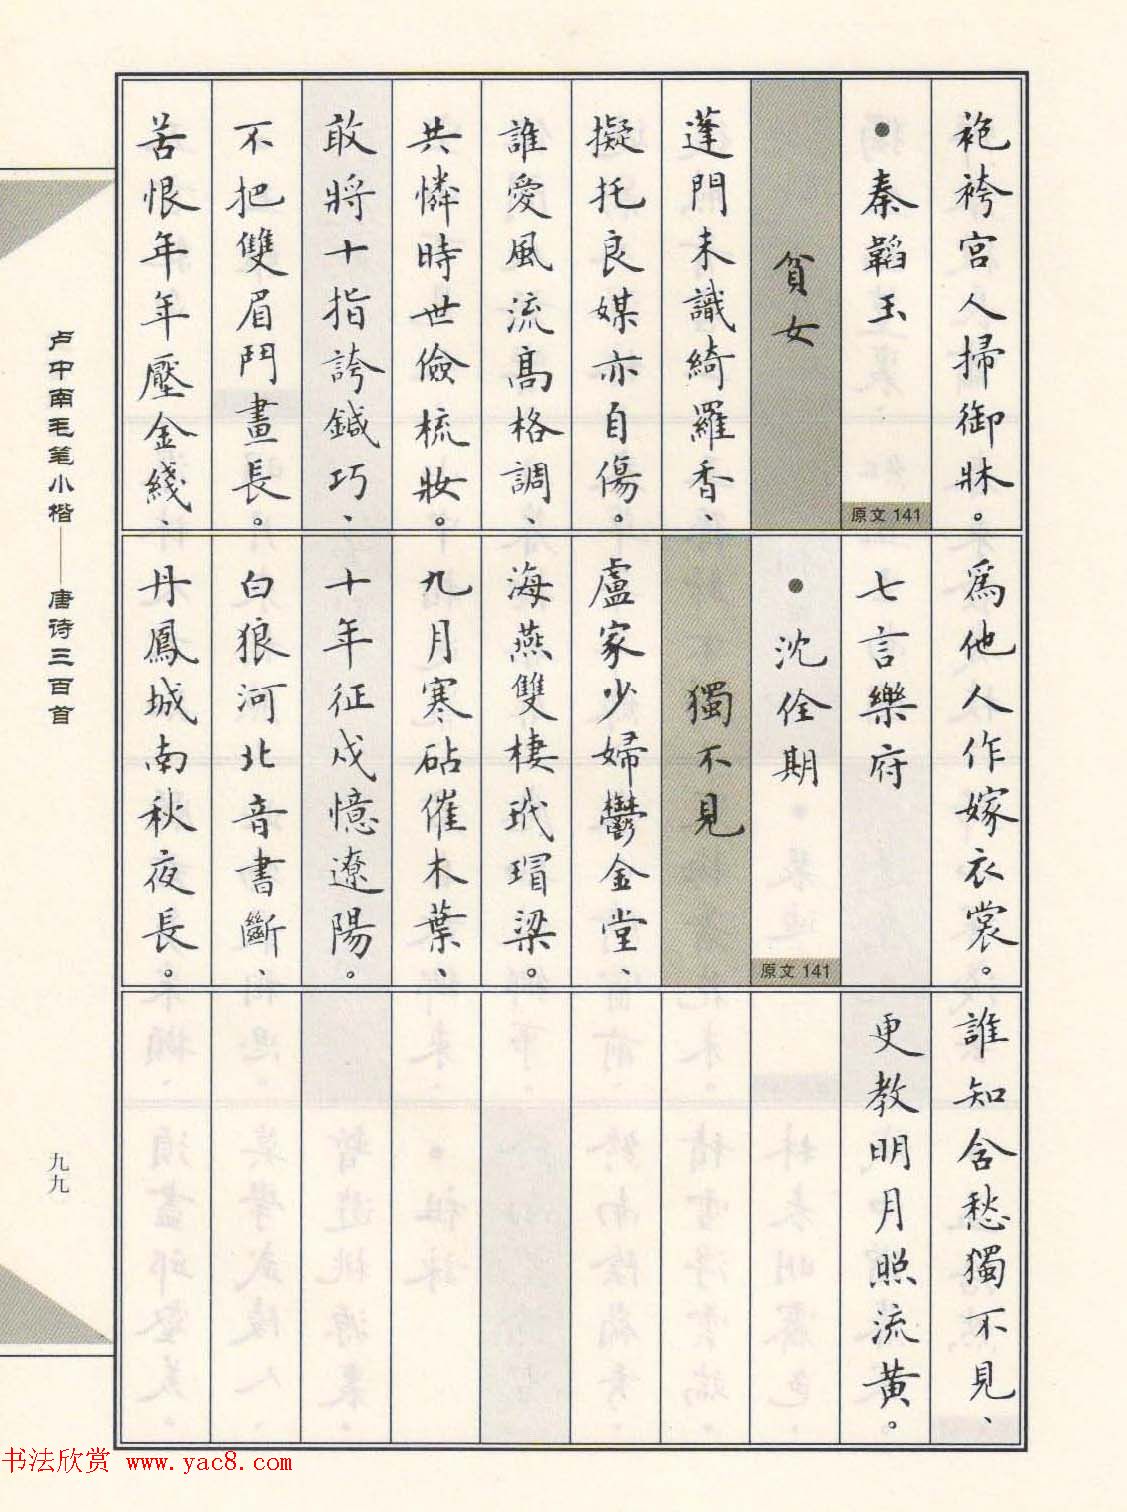 袍袴宮人掃御牀。
●秦韜玉
原文 141
貧女
蓬門未識綺羅香、
擬托良媒亦自傷。
誰愛風流高格調、
共憐時世儉梳妝。
敢將十指誇鍼巧、
不把雙眉鬥畫長。
苦恨年年壓金綫、
爲他人作嫁衣裳。
七言樂府
●沈佺期
原文 141
獨不見
盧家少婦鬱金堂、
海燕雙棲玳瑁梁。
九月寒砧催木葉、
十年征戍憶遼陽。
白狼河北音書斷、
丹鳳城南秋夜長。
誰知含愁獨不見、
更教明月照流黄。
卢中南毛笔小楷——唐诗三百首
九九
书法欣赏 www.yac8.com